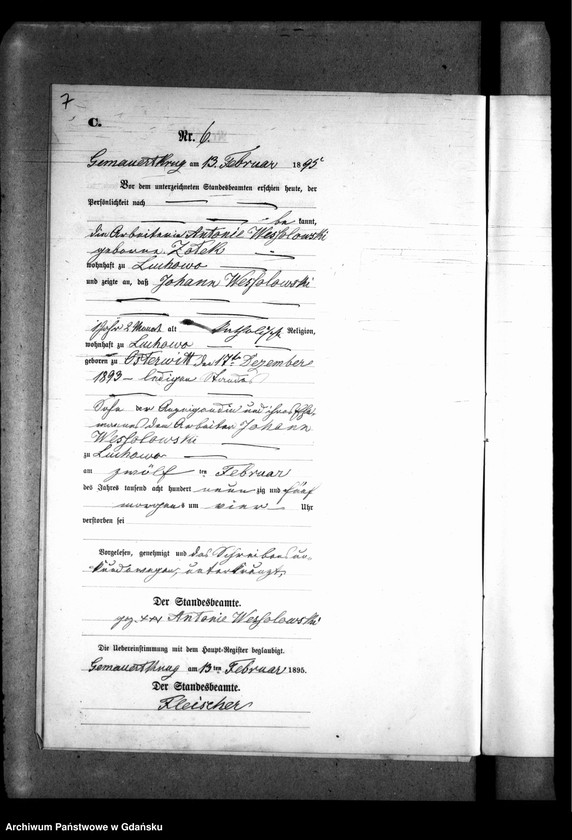 7
C.
Nr. 6.
Gemauertkrug am 13. Februar 1895
Vor dem unterzeichneten Standesbeamten erschien heute, der
Persönlichkeit nach
be kannt,
die Arbeiterin Antonie Wessolowski
geborene Zolek
wohnhaft zu Linhowo
und zeigte an, daß Johann Wessolowski
1 Jahr 2 Monat alt katholisch Religion,
wohnhaft zu Linhowo
geboren zu Osterwitt den 17ten Dezember
1893 – ledigen Standes
Sohn der Anzeigenden und ihres Ehe
mannes des Arbeiter Johann
Wessolowski
zu Linhowo
am zwölf ten Februar
des Jahres tausend acht hundert neun zig und fünf
morgens um vier Uhr
verstorben sei
Vorgelesen, genehmigt und des Schreibens un-
kunde wegen, unterkreuzt.
Der Standesbeamte.
gez. xxx Antonie Wessolowski
Die Uebereinstimmung mit dem Haupt-Register beglaubigt.
Gemauertkrug am 13 ten Februar 1895.
Der Standesbeamte.
Fleischer
Archiwum Państwowe w Gdańsku